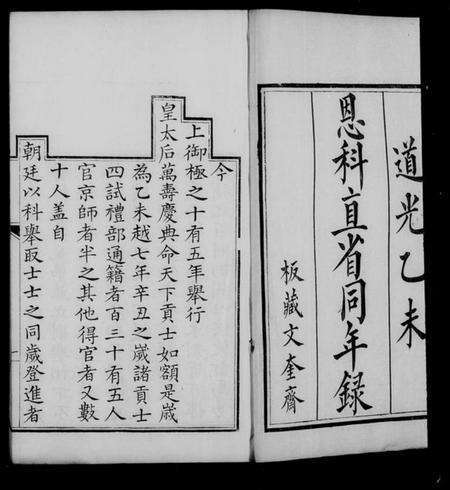 道光乙未
恩科直省同年録
板藏文奎齋
今
上御極之十有五年舉行
皇太后萬壽慶典命天下貢士如額是歲
為乙未越七年辛丑之歲諸貢士
四試禮部通籍者百三十有五人
官京師者半之其他得官者又數
十人盖自
朝廷以科舉取士士之同歲登進者